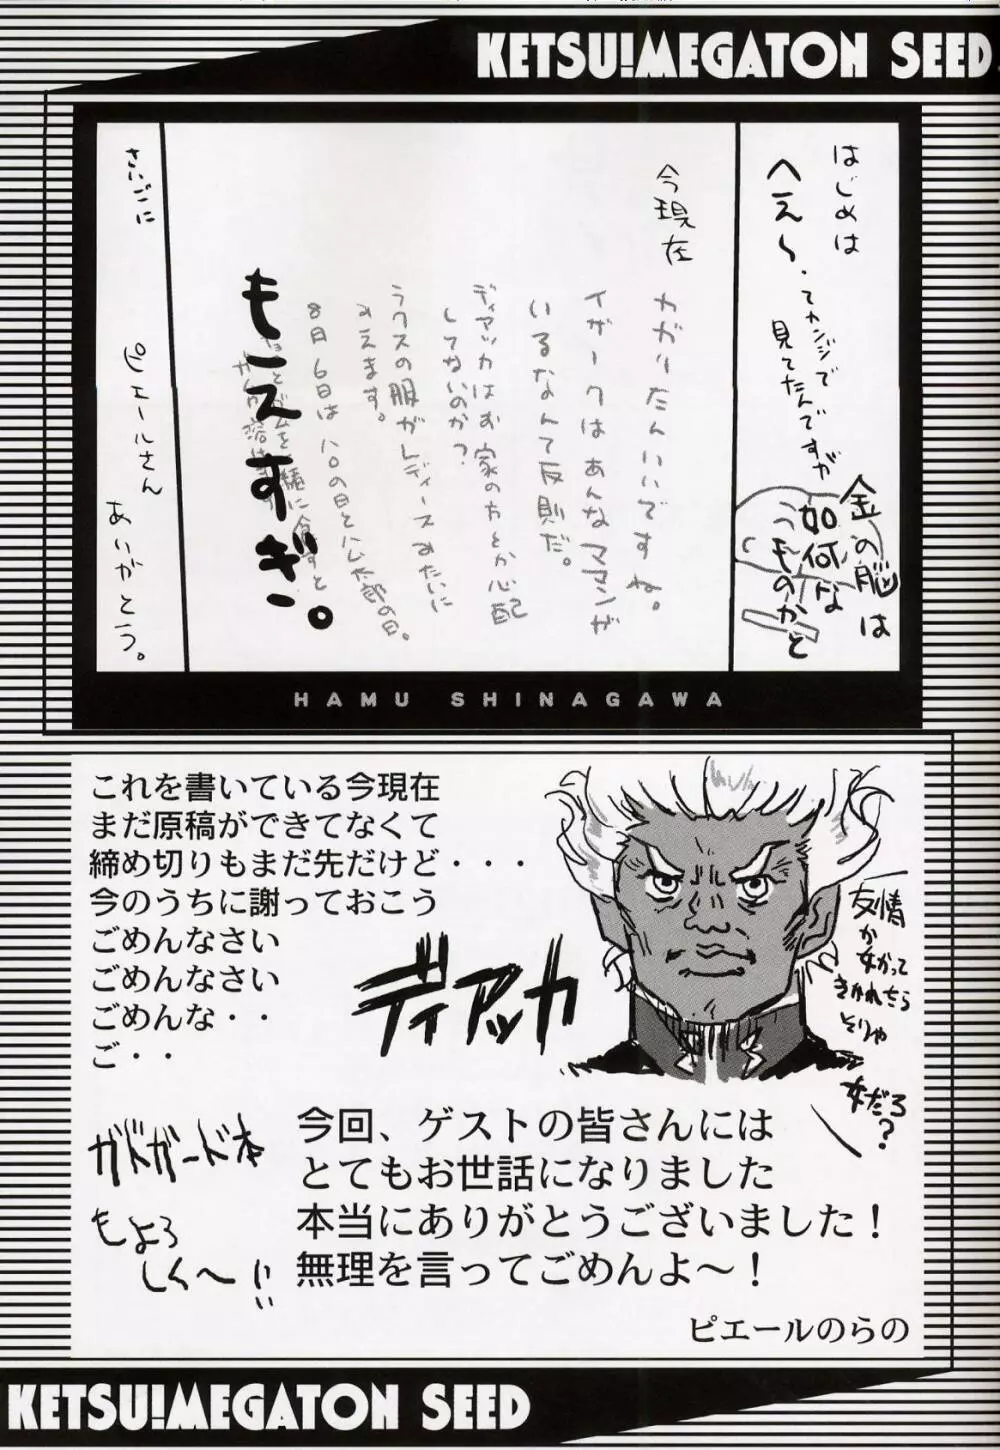 KETSU!MEGATON SEED
はじめは
へえ〜、てカンジで
見てたんですが
金の脳は
如何な
ものかと
今現在
カガリたんいいですね。
イザークはあんなママンが
いるなんて反則だ。
ディアッカはお家の方とか心配
してないのか？
ラクスの服がレディースみたいに
みえます。
8月6日はハロの日とハム太郎の日。
もこスすぎ。
さいごに
ピエールさん
ありがとう。
HAMU SHINAGAWA
これを書いている今現在
まだ原稿ができてなくて
締め切りもまだ先だけど・・・
今のうちに謝っておこう
ごめんなさい
ごめんなさい
ごめんな・・
ご・・
ディアッカ
友情
か女かって
きかれたら
そりゃ
女だろ？
ガドガード本
もよろ
しく〜!!
今回、ゲストの皆さんには
とてもお世話になりました
本当にありがとうございました！
無理を言ってごめんよ〜！
ピエールのらの
KETSU!MEGATON SEED